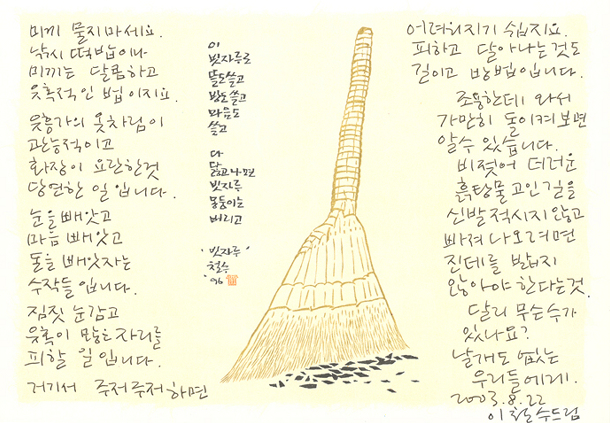 미끼 물지마세요.
낚시 떡밥이나
미끼는 달콤하고
유혹적인 법이지요.
유흥가의 옷차림이
관능적이고
화장이 요란한것
당연한 일입니다.
눈을 빼앗고
마음 빼앗고
돈을 빼앗자는
수작들입니다.
짐짓 눈감고
유혹이 많은자리를
피할 일입니다.
거기서 주저주저하면
이
빗자루로
뜰도쓸고
방도쓸고
마음도
쓸고
다
닳고나면
빗자루
몽둥이는
버리고
'빗자루'
철수
'96
어려워지기 쉽지요.
피하고 달아나는것도
길이고 방법입니다.
조용한데 와서
가만히 돌이켜보면
알수 있습니다.
비젖어 더러운
흙탕물고인길을
신발적시지않고
빠져나오려면
진데를 밟지
않아야 한다는것.
달리 무슨수가
있나요?
날개도 없는
우리들에게.
2003.8.22
이철수드림